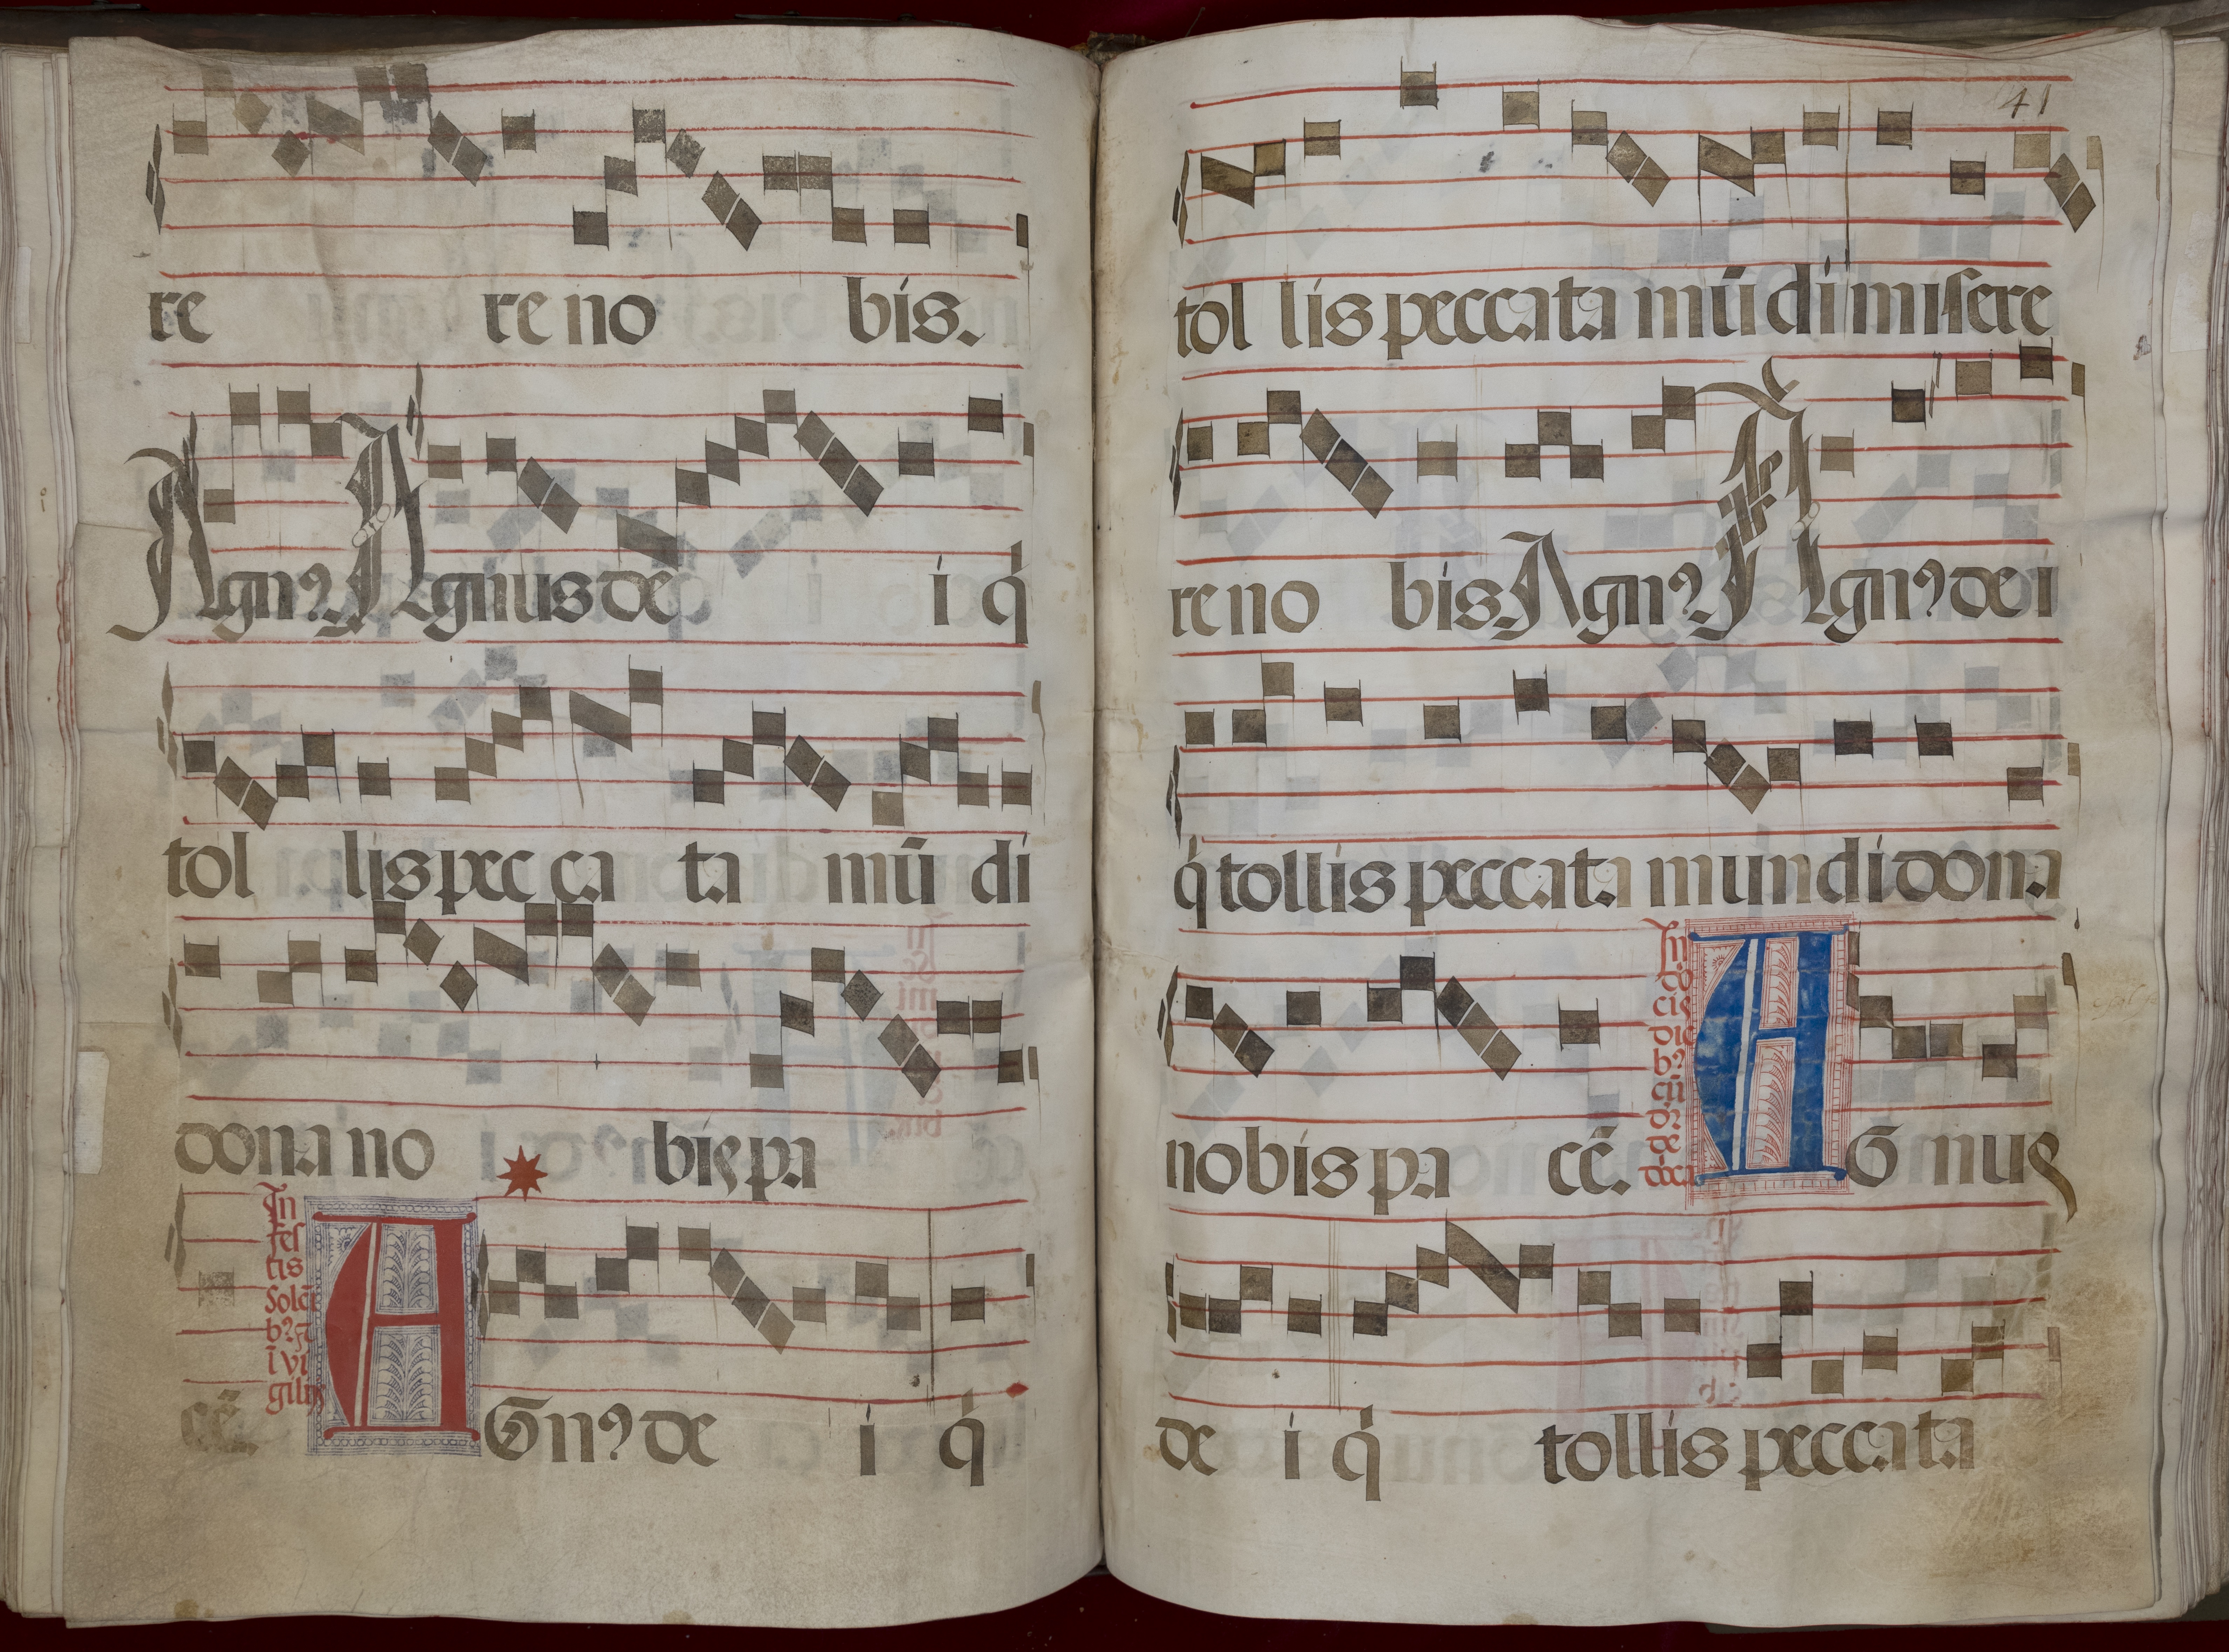 re re no bis.
Agnꝰ Agnus de i q̇
tol lis pec ca ta mū di
dona no bis pa
In
fes
tis
solē
bꝰ ⁊
ī vi
gilijs
cē. AGnꝰ de i q̇
41
tol lis peccata mū di miſere
re no bis. Agnꝰ Agnꝰ de i
q̇ tollis peccata mundi dona
In
dō
cis
die
bꝰ
cū
de
nobis pa cē. AGnus
de i q̇ tollis peccata